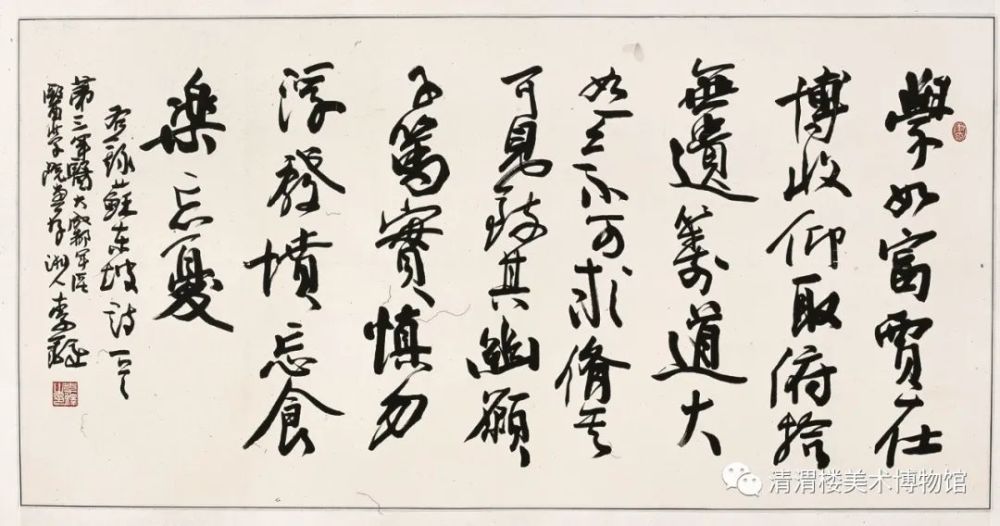 學如富賈在
博收仰取俯拾
無遺籌道大
如天不可求脩其
可見致其幽願
子篤實慎勿
浮發憤忘食
樂忘憂
右錄蘇東坡詩一首
第三軍醫大成都軍區
醫學院 湘人李鐸
清渭楼美术博物馆